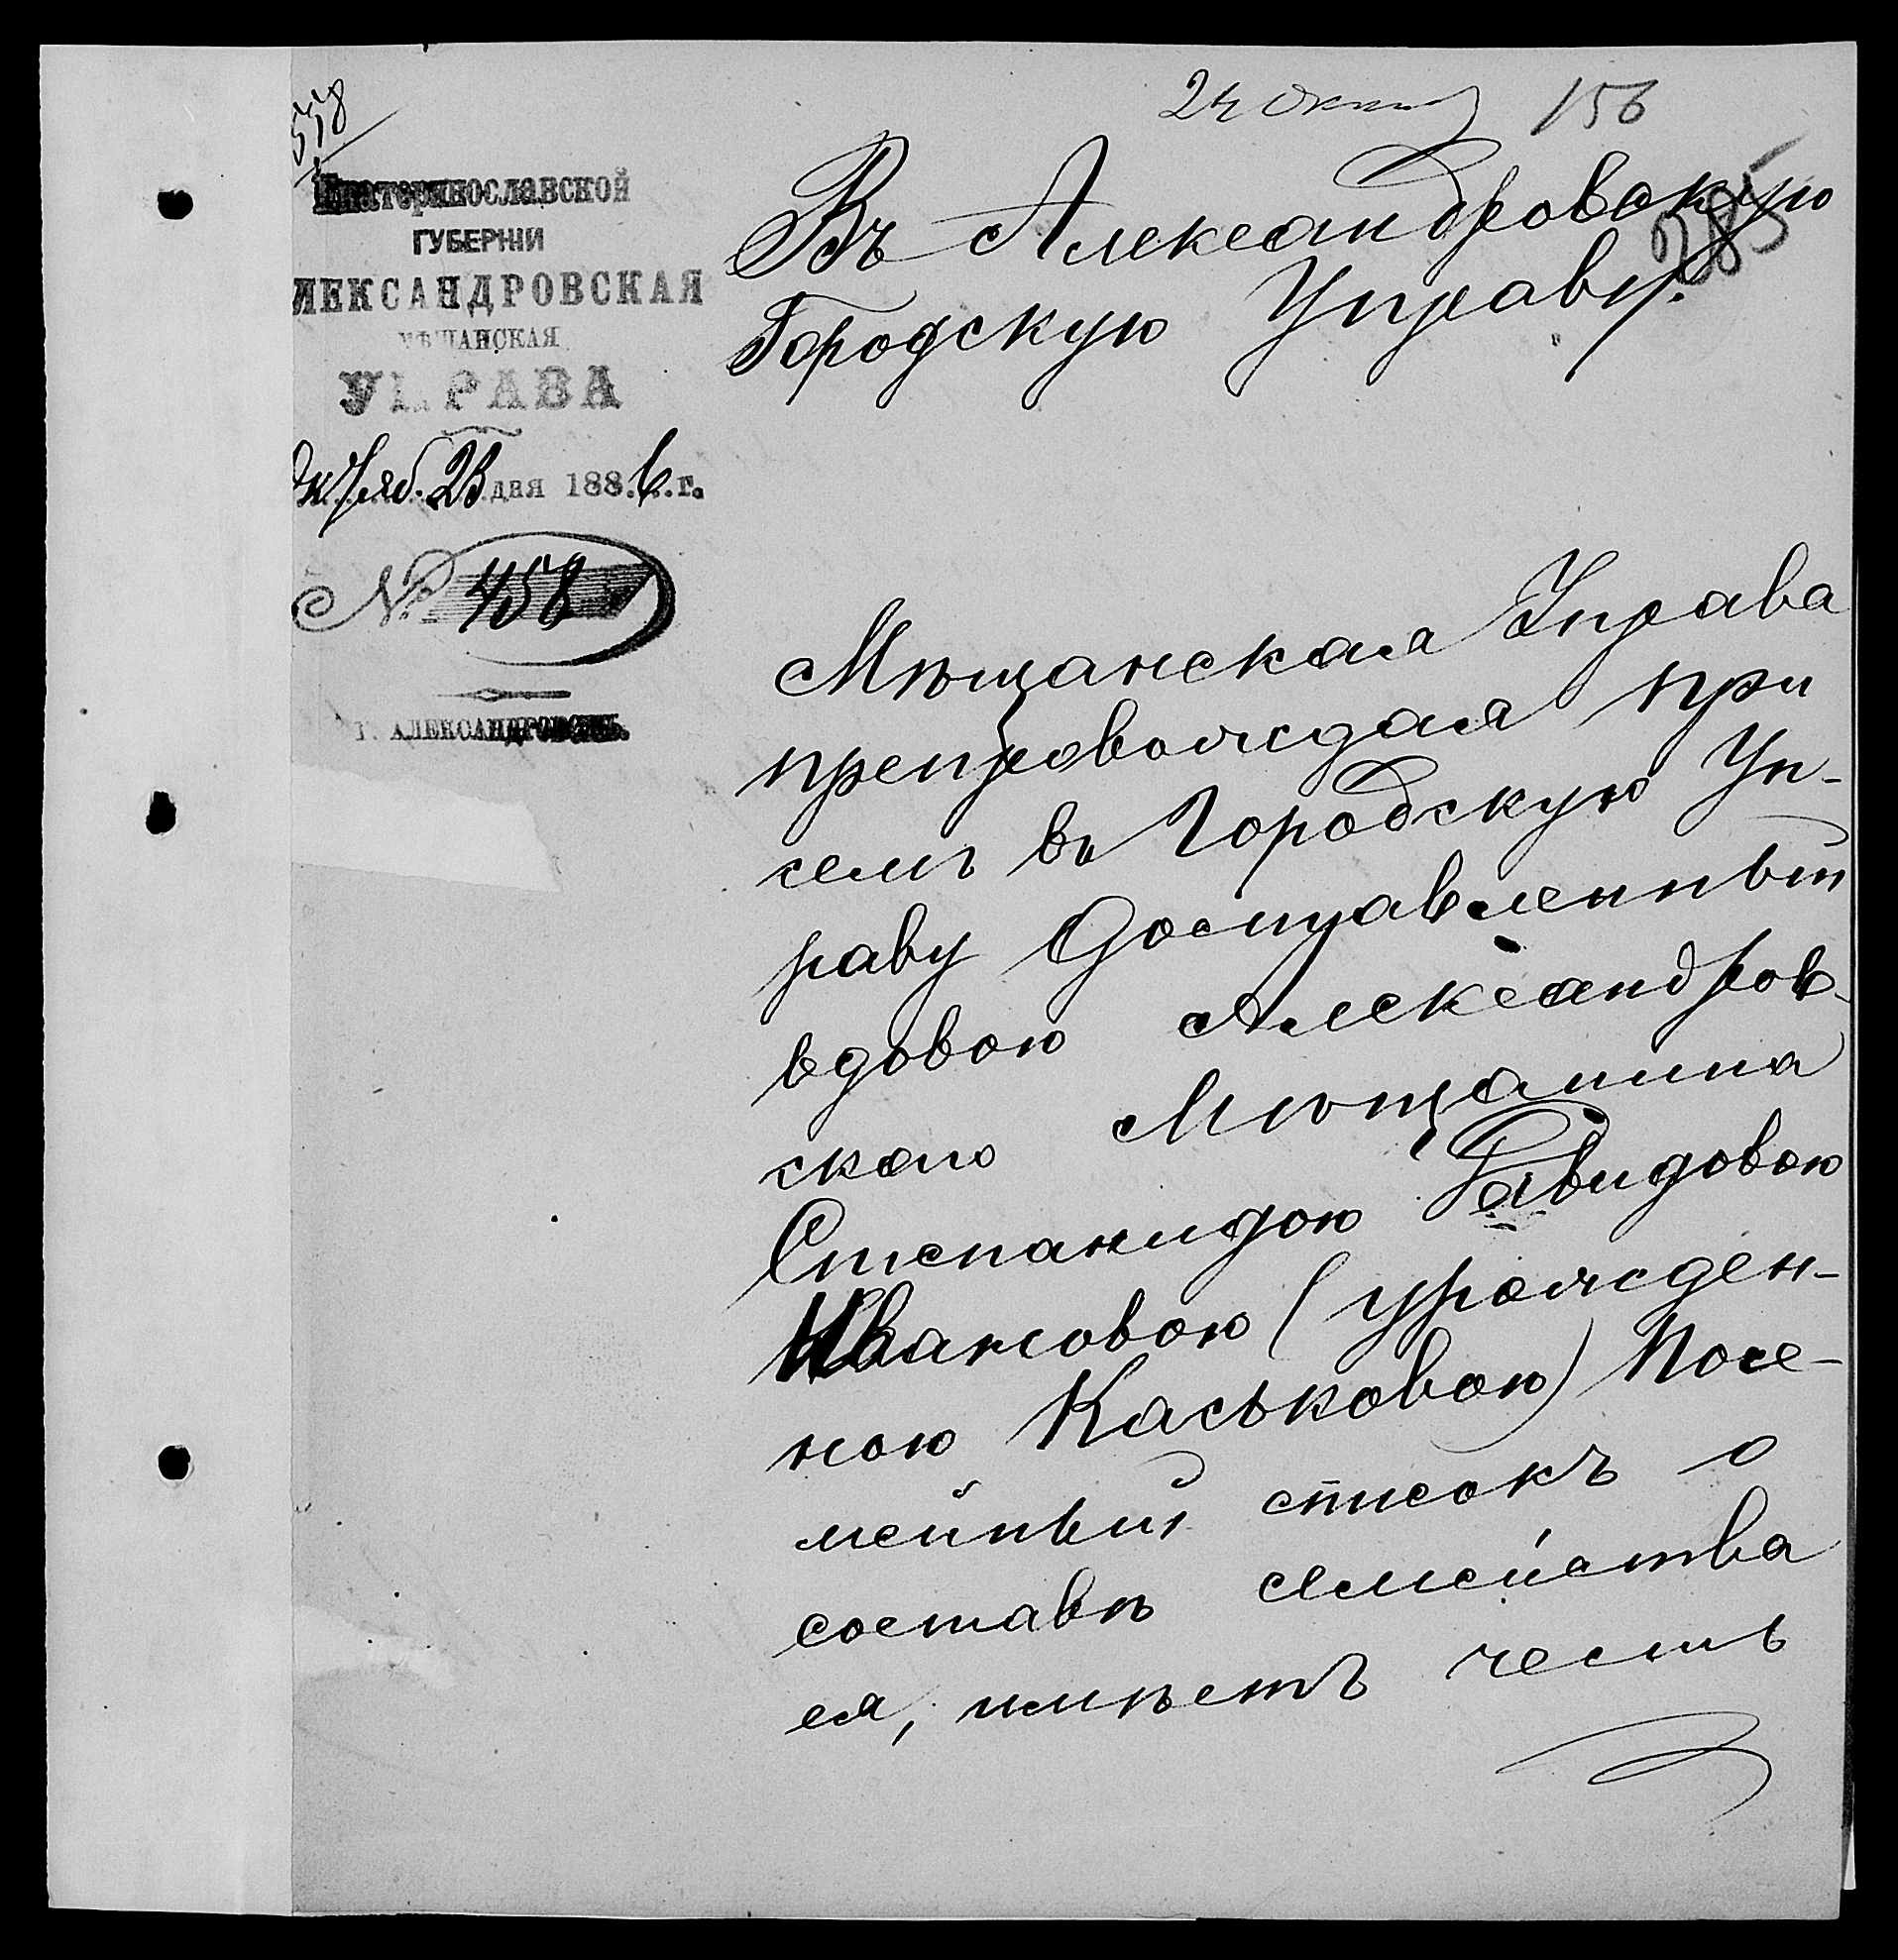 24 Октяб 156
558
285
Екатеринославской
ГУБЕРНІИ
ЛЕКСАНДРОВСКАЯ
МѢЩАНСКАЯ
УПРАВА
Октяб. 23 дня 1886.г.
№ 458
Г. АЛЕКСАНДРОВСКЪ.
Въ Александровскую
Городскую Управу.
Мѣщанская Управа
препровождая при
семъ въ Городскую Уп-
раву доставленный
вдовою Александров-
скаго Мѣщанина
Степанидою Давидовою
Ивановою (урожден-
ною Каськовою) Посе-
мейный списокъ о
составѣ семейства
ея, имѣетъ честь